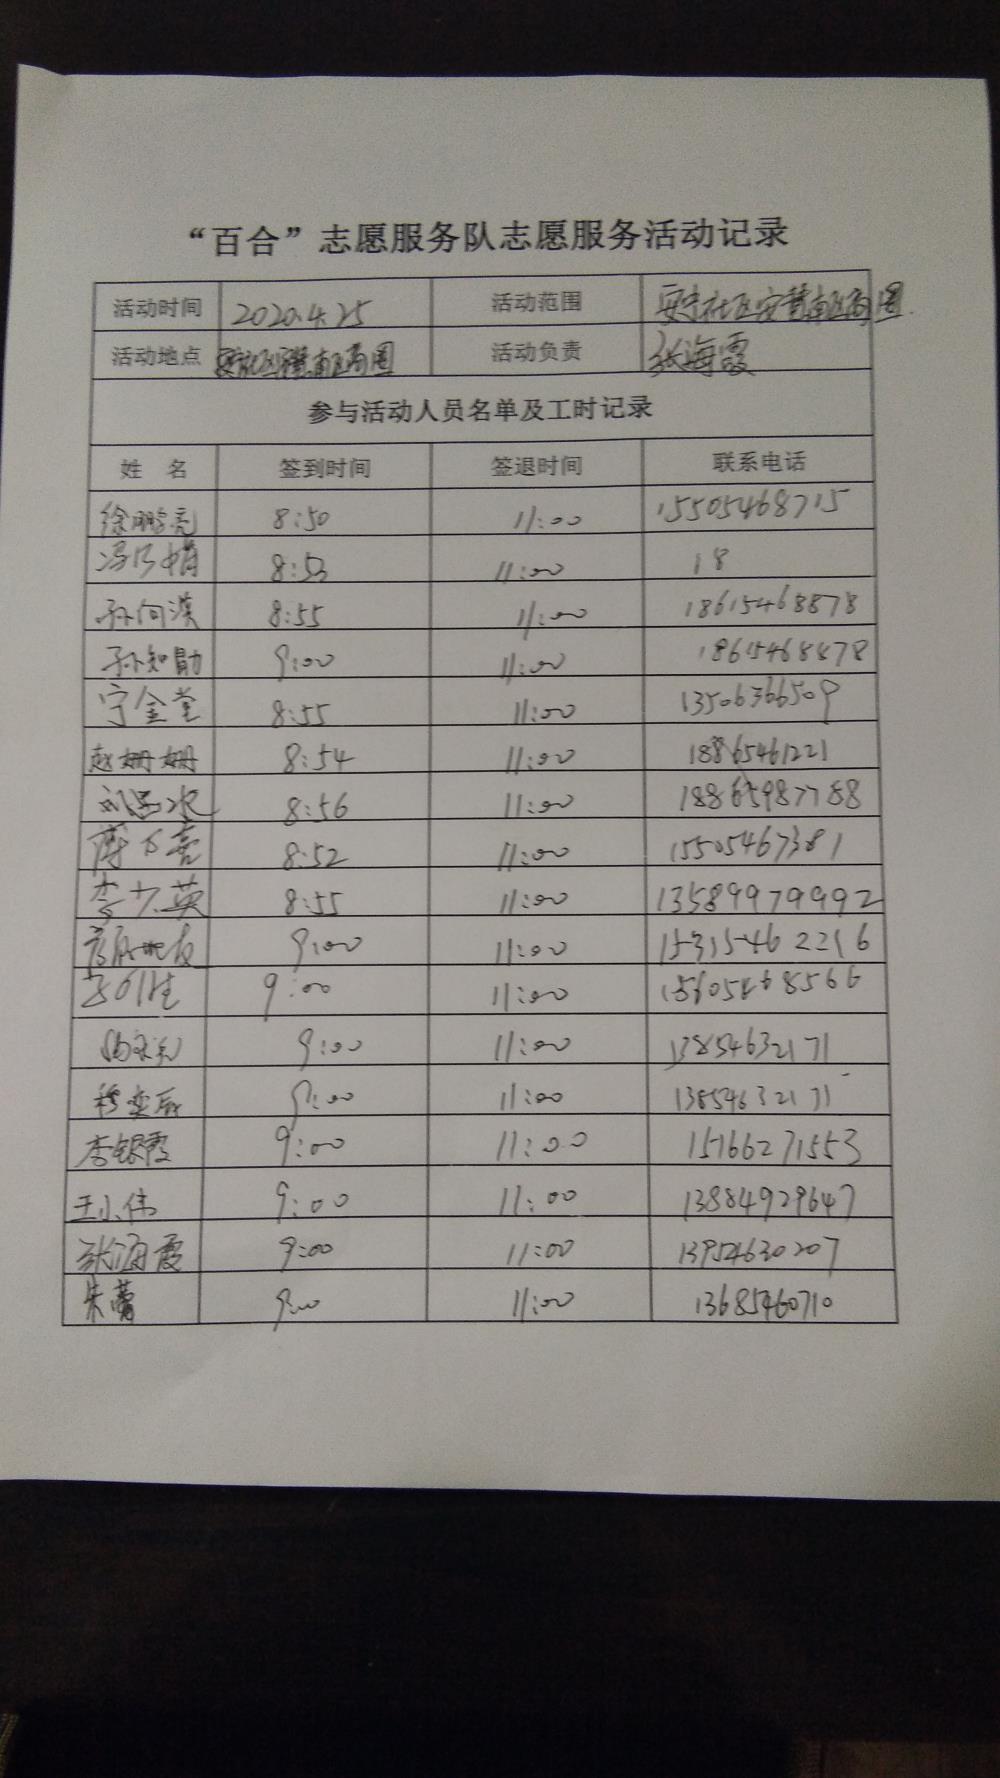 “百合”志愿服务队志愿服务活动记录
活动时间 2020.4.25 活动范围 安宁社区安慧南区商圈
活动地点 南区商圈 活动负责 张海霞
参与活动人员名单及工时记录
姓 名 签到时间 签退时间 联系电话
徐鹏亮 8:50 11:00 15505468715
8:53 11:00 18
孙向漠 8:55 11:00 18615468878
孙知勖 9:00 11:00 18615468878
宁金堂 8:55 11:00 13506366509
赵姗姗 8:54 11:00 18865461221
8:56 11:00 18865987788
8:52 11:00 15505467381
李少英 8:55 11:00 13589979992
9:00 11:00 15315462216
9:00 11:00 15605468566
9:00 11:00 13854632171
穆奕辰 9:00 11:00 13854632171
李银霞 9:00 11:00 15166271553
王小伟 9:00 11:00 13884929647
张海霞 9:00 11:00 13954630207
朱蕾 9:00 11:00 13685460710